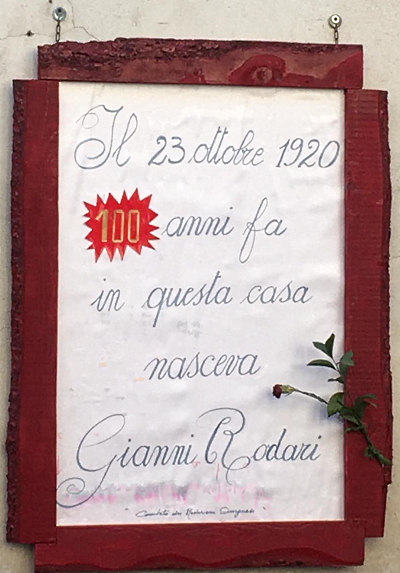 Il 23 ottobre 1920
100 anni fa
in questa casa
nasceva
Gianni Rodari